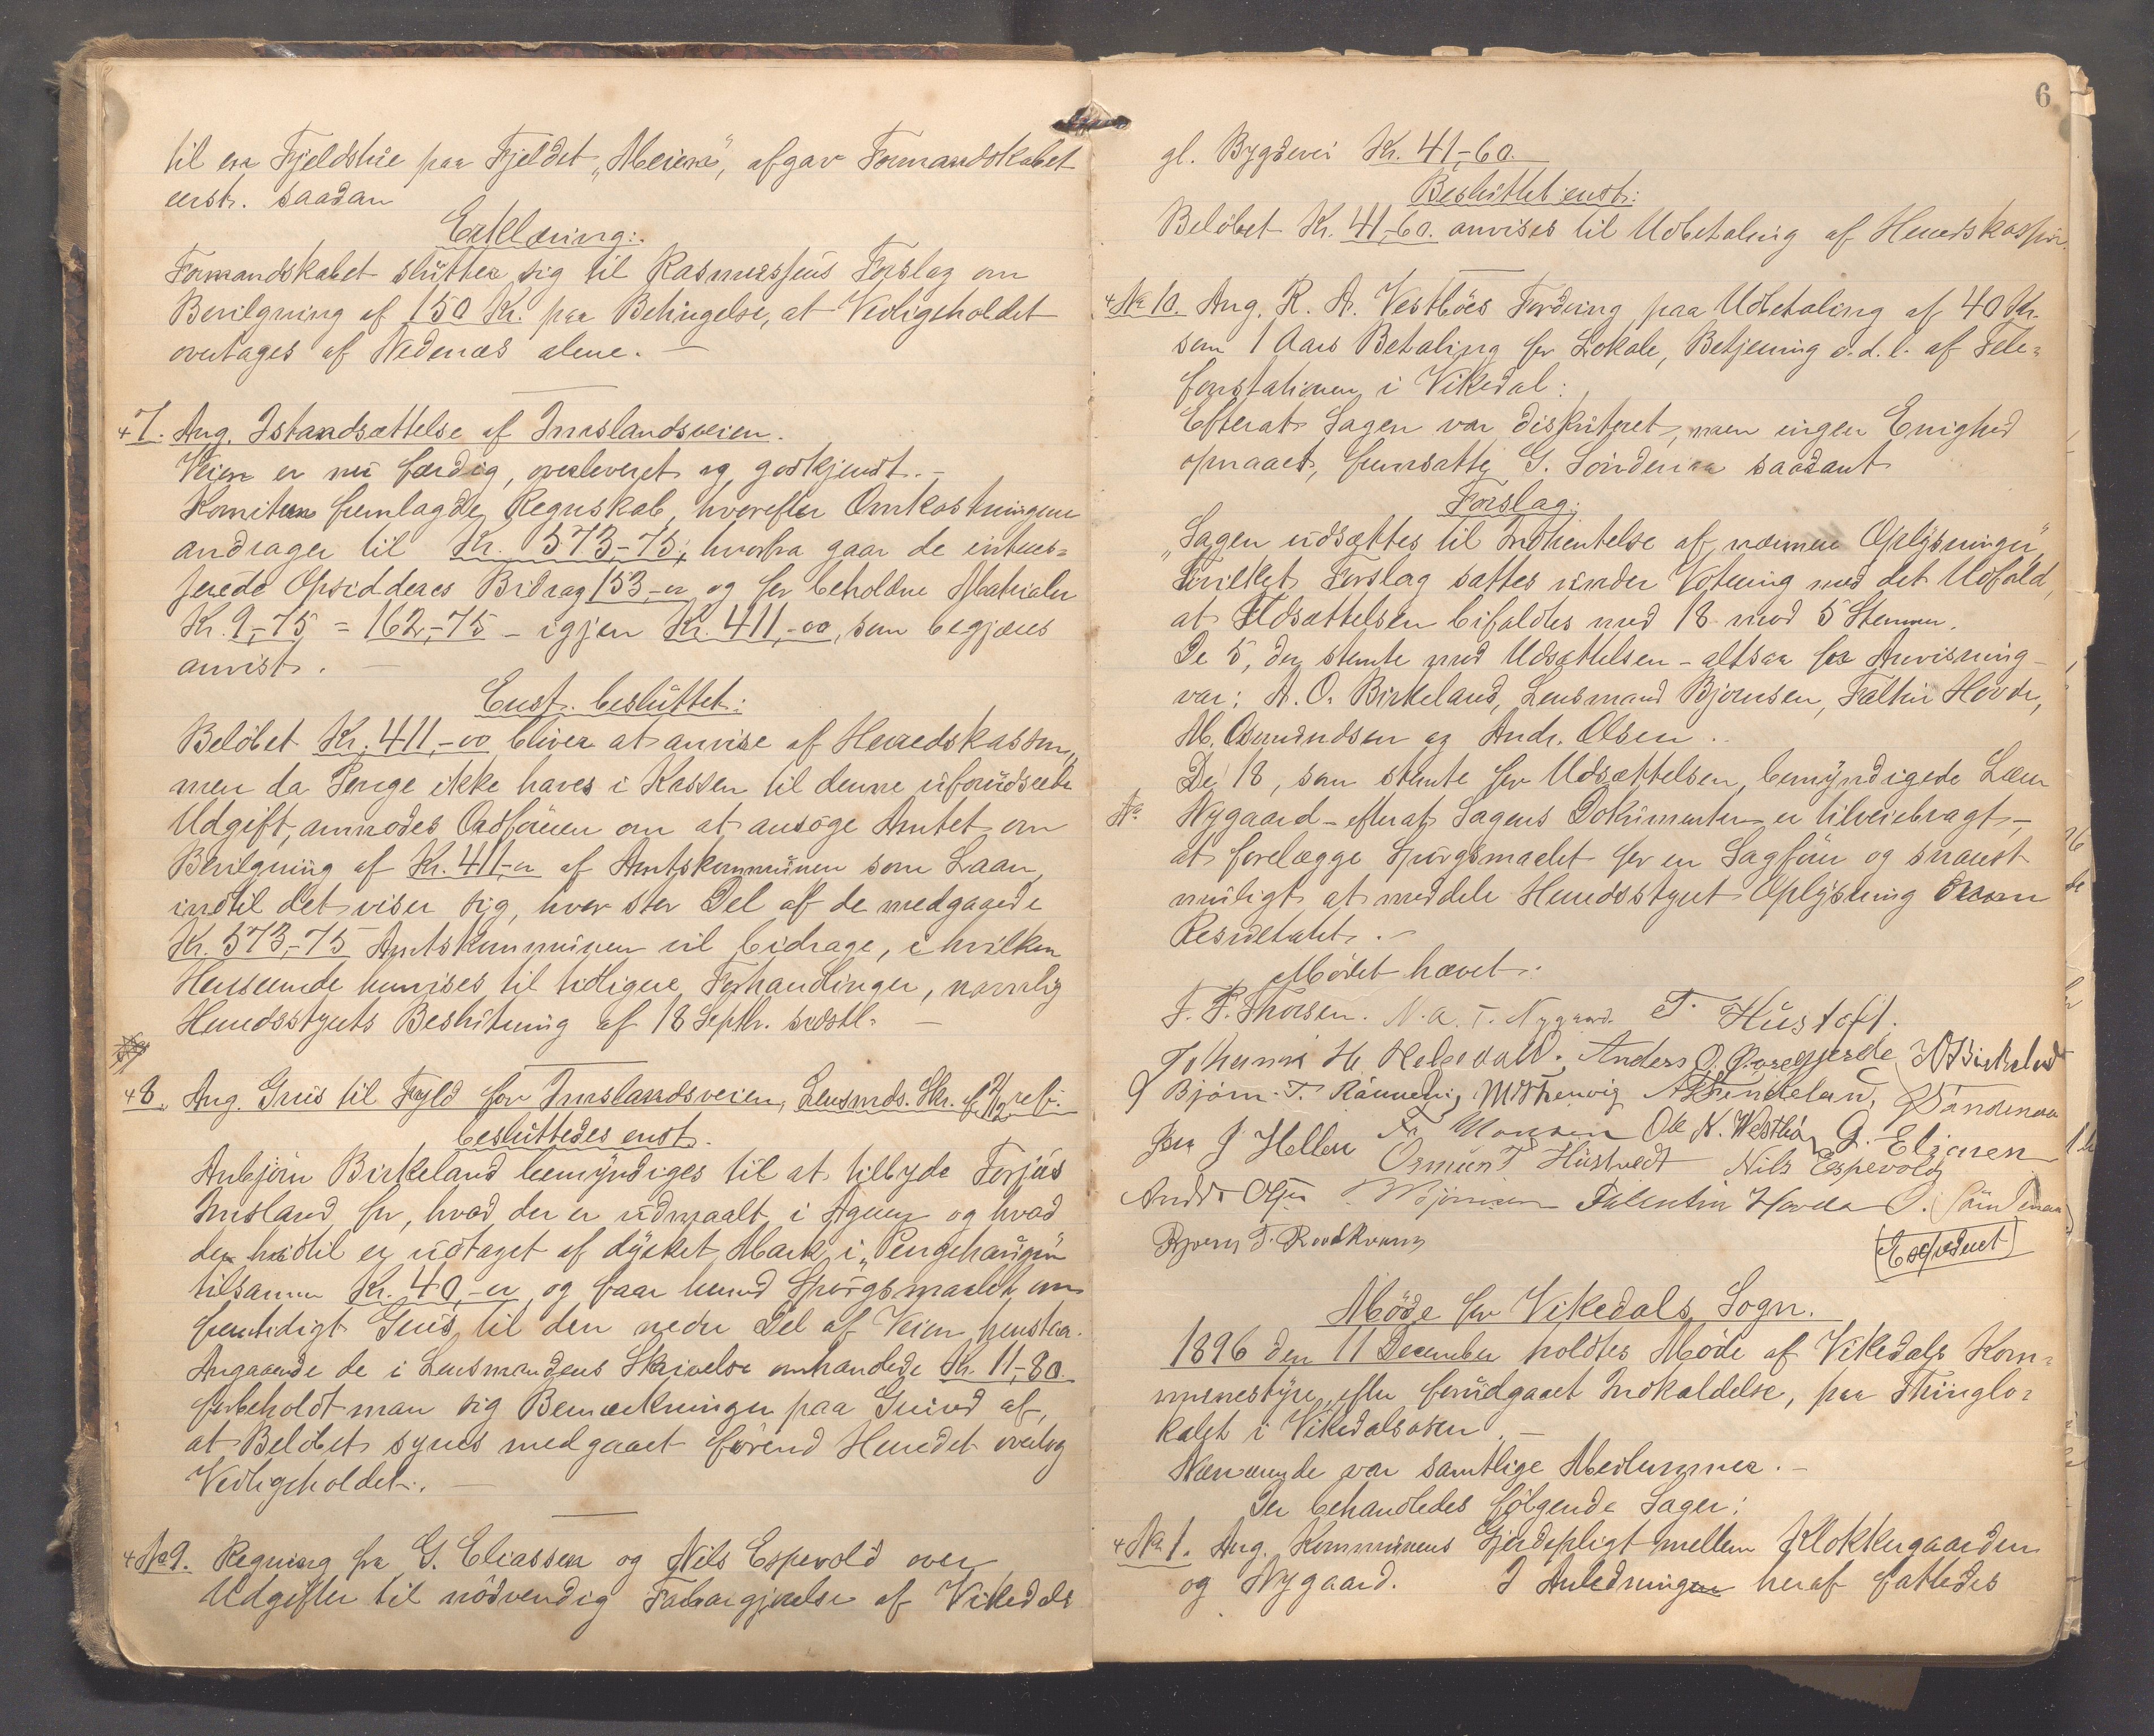 til en Fjeldstue paa Fjeldet "Meien", afgav Formandskabet
enst. saadan
Erklæring:
Formandskabet slutter sig til Rasmussens Forslag om
Bevilgning af 150 Kr. paa Betingelse, at Vedligeholdet
overtages af Nedenæs alene. —
7. Ang. Istandsættelse af Imslandsveien.
Veien er nu færdig, overleveret og godkjendt. –
Komiteen fremlagde Regnskab, hvorefter Omkostningerne
andrager til Kr. 573,-75, hvorfra gaar de interes=
serede Opsidderes Bidrag 153,-00 og for beholdne Materialer
Kr. 9,-75 = 162,-75 – igjen Kr. 411,-00, som begjæres
anvist. —
Enst. besluttet:
Beløbet Kr. 411,-00 bliver at anvise af Herredskassen,
men da Penge ikke haves i Kassen til denne uforudseede
Udgift, anmodes Ordføreren om at ansøge Amtet om
Bevilgning af Kr. 411,-00 af Amtskommunen som Laan,
indtil det viser sig, hvor stor Del af de medgaaede
Kr. 573,-75 Amtskommunen vil bidrage, i hvilken
Henseende henvises til tidligere Forhandlinger, navnlig
Herredsstyrets Beslutning af 18 Septbr. sidstl. —
8. Ang. Grus til Fyld for Imslandsveien, Lensmds. Skr. af
besluttedes enst.
Anbjørn Birkeland bemyndiges til at tilbyde Torjus
Imsland for, hvad der er udmaalt i Ageren og hvad
der hidtil er udtaget af dyrket Mark i "Pengehaugen"
tilsammen Kr. 40,-00 og faar herved Spørgsmaalet om
fremtidigt Grus til den nedre Del af Veien henstaa.
Angaaende de i Lensmandens Skrivelse omhandlede Kr. 11,-80
forbeholdt man sig Bemærkninger paa Grund af,
at Beløbet synes medgaaet førend Herredet overtog
Vedligeholdet. —
No 9. Regning fra G. Eliassen og Nils Espevold over
Udgifter til nødvendig Farbargjørelse af Vikedals
6
gl. Bygdevei Kr. 41,-60.
Besluttet enst:
Beløbet Kr. 41,-60. anvises til Udbetaling af Herredskassen.
No 10. Ang. R. A. Vestbøes Fordring paa Udbetaling af 40 Kr.
som 1 Aars Betaling for Lokale, Betjening o.d.l. af Tele=
fonstationen i Vikedal:
Efterat Sagen var diskuteret, men ingen Enighed
opnaaet, fremsatte G. Søndenaa saadant
Forslag:
"Sagen udsættes til Indhentelse af nærmere Oplysninger",
hvilket Forslag sattes under Votering med det Udfald,
at Udsættelsen bifaldtes med 18 mod 5 Stemmer.
De 5, der stemte mod Udsættelsen – altsaa for Anvisning –
var: A. O. Birkeland, Lensmand Bjørnsen, Faltin Hovde,
M. Osmundsen og Andr. Olsen.
De 18, som stemte for Udsættelsen, bemyndigede Læn
No Nygaard – efterat Sagens Dokumenter er tilveiebragt –
at forelægge Spørgsmaalet for en Sagfører og snarest
muligt at meddele Herredsstyret Oplysning derom
Resultatet. –
Mødet hævet:
F. F. Thorsen. N. A. T. Nygaard. T. Hustoft.
Anders O. Øvregjerde A O Birkeland
Bjørn T. Søndenaa
J Hellen Ole N. Westbø G. Eliassen
Osmund Hustvedt Nils Espevold
Andr Olsen Bjørnsen Falentin Hovda O. Søndenaa
(Expederet)
Møde for Vikedals Sogn.
1896 den 11 December holdtes Møde af Vikedals Kom=
munestyre, efter forudgaaet Indkaldelse, paa Thinglo=
kalet i Vikedalsøren. –
Nærværende var samtlige Medlemmer. –
Der behandledes følgende Sager:
No 1. Ang. Kommunens Gjerdepligt mellem Klokkergaarden
og Nygaard. I Anledningen heraf fattedes